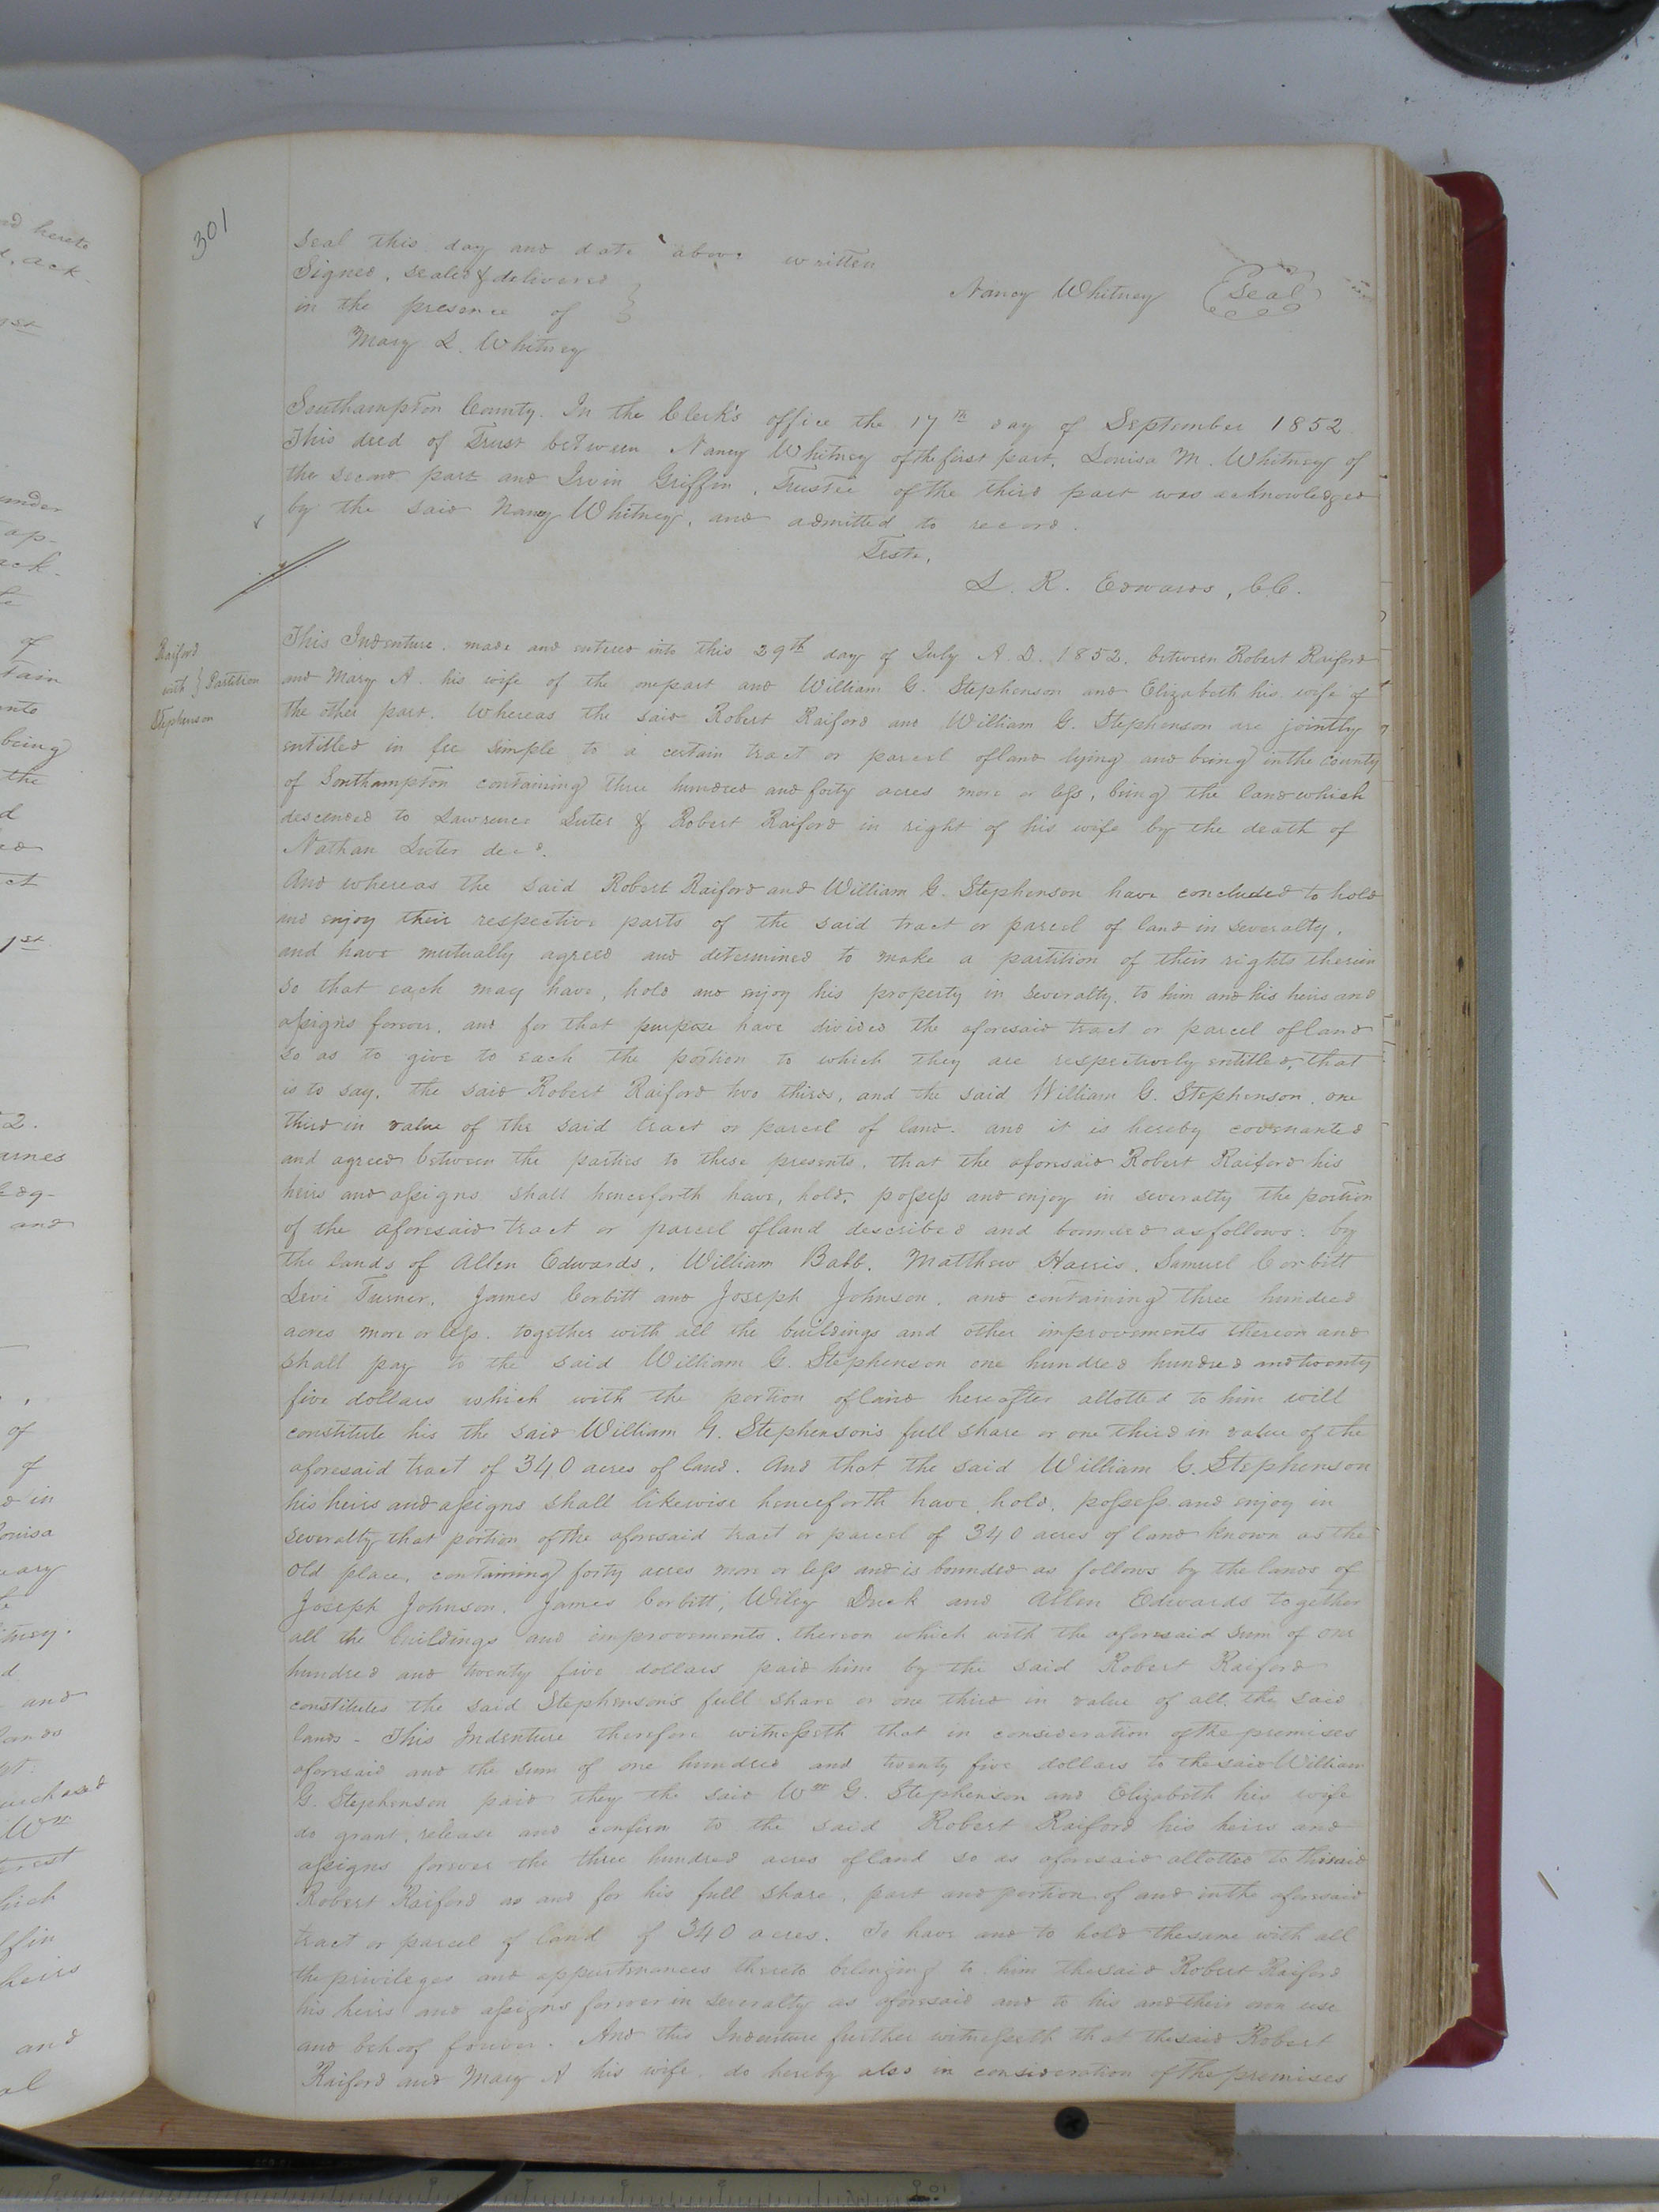 301
Seal this day and date above written
Signed, sealed & delivered
in the presence of
Nancy Whitney (Seal)
Mary L. Whitney
Southampton County. In the Clerk's office the 17th day of September 1852
This deed of Trust between Nancy Whitney of the first part, Louisa M. Whitney of
the second part and Irvin Griffin, Trustee of the third part was acknowledged
by the said Nancy Whitney, and admitted to record.
Teste,
L. R. Edwards, C.C.
Raiford
with } Partition
Stephenson
This Indenture made and entered into this 29th day of July A. D. 1852. between Robert Raiford
and Mary A. his wife of the one part and William G. Stephenson and Elizabeth his wife of
the other part. Whereas the said Robert Raiford and William G. Stephenson are jointly
entitled in fee simple to a certain tract or parcel of land lying and being in the county
of Southampton containing three hundred and forty acres more or less, being the land which
descended to Lawrence Luter & Robert Raiford in right of his wife by the death of
Nathan Luter decd.
And whereas the said Robert Raiford and William G. Stephenson have concluded to hold
and enjoy their respective parts of the said tract or parcel of land in severalty,
and have mutually agreed and determined to make a partition of their rights therein
so that each may have, hold and enjoy his property in severalty, to him and his heirs and
assigns forever, and for that purpose have divided the aforesaid tract or parcel of land
so as to give to each the portion to which they are respectively entitled, that
is to say, the said Robert Raiford two thirds, and the said William G. Stephenson, one
third in value of the said tract or parcel of land. and it is hereby covenanted
and agreed between the parties to these presents, that the aforesaid Robert Raiford his
heirs and assigns shall henceforth have, hold, possess and enjoy in severalty the portion
of the aforesaid tract or parcel of land described and bounded as follows: by
the lands of Allen Edwards, William Babb, Matthew Harris, Samuel Corbitt
Levi Turner, James Corbitt and Joseph Johnson, and containing three hundred
acres more or less, together with all the buildings and other improvements thereon and
shall pay to the said William G. Stephenson one hundred hundred and twenty
five dollars which with the portion of land hereafter allotted to him will
constitute his the said William G. Stephenson's full share or one third in value of the
aforesaid tract of 340 acres of land. And that the said William G. Stephenson
his heirs and assigns shall likewise henceforth have, hold, possess and enjoy in
severalty that portion of the aforesaid tract or parcel of 340 acres of land known as the
old place, containing forty acres more or less and is bounded as follows by the lands of
Joseph Johnson, James Corbitt, Wiley Duck and Allen Edwards together
all the buildings and improvements thereon which with the aforesaid sum of one
hundred and twenty five dollars paid him by the said Robert Raiford
constitutes the said Stephenson's full share or one third in value of all the said
lands - This Indenture therefore witnesseth that in consideration of the premises
aforesaid and the sum of one hundred and twenty five dollars to the said William
G. Stephenson paid they the said Wm G. Stephenson and Elizabeth his wife
do grant, release and confirm to the said Robert Raiford his heirs and
assigns forever the three hundred acres of land so as aforesaid allotted to the said
Robert Raiford as and for his full share, part and portion of and in the aforesaid
tract or parcel of land of 340 acres. To have and to hold the same with all
the privileges and appurtenances thereto belonging to him the said Robert Raiford
his heirs and assigns forever in severalty as aforesaid and to his and their own use
and behoof forever. And this Indenture further witnesseth that the said Robert
Raiford and Mary A his wife do hereby also in consideration of the premises